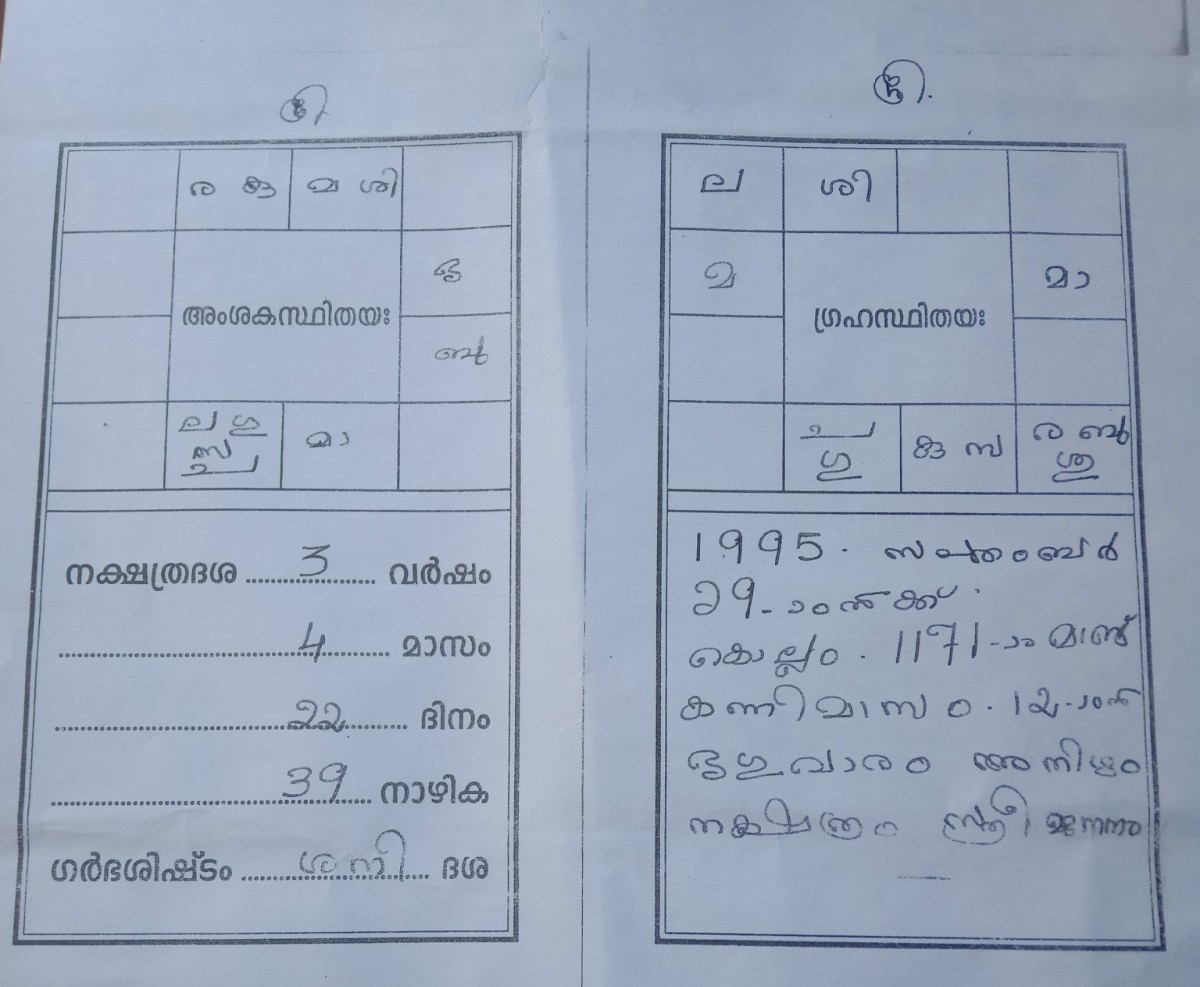 ശ്രീ
ര കു മ ശി
ബു
അംശകസ്ഥിതയഃ
ല ഗു
മാ
നക്ഷത്രദശ 3 വർഷം
4 മാസം
22 ദിനം
39 നാഴിക
ഗർഭശിഷ്ടം ശനി ദശ
ശ്രീ.
ല ശി
മ മാ
ഗ്രഹസ്ഥിതയഃ
ര ബു
ഗു കു സ ശു
1995. സപ്തംബർ
29-ാംനക്ക്
കൊല്ലം. 1171-ാ മാണ്ട്
കന്നിമാസം. 12-ാംന
വാരം അനിഴം
നക്ഷത്രം സ്ത്രീ ജനനം